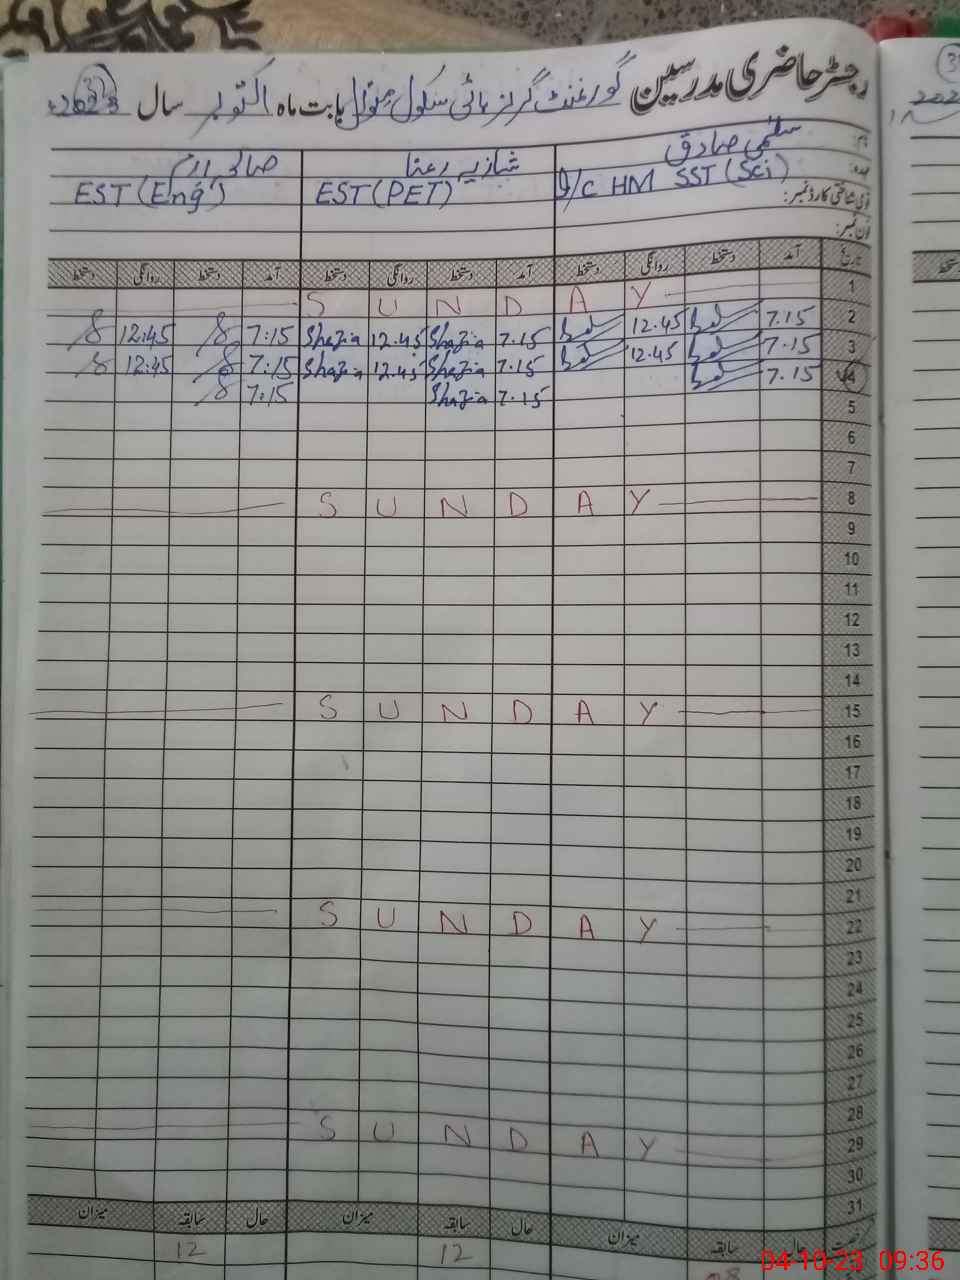 رجسٹر حاضری مدرسین گورنمنٹ گرلز ہائی سکول بابت ماہ اکتوبر سال 2023ء
نام: سلمیٰ صادق شازیہ رعنا صائمہ ارم
عہدہ: I/C HM SST (Sci) EST (PET) EST (Eng)
قومی شناختی کارڈ نمبر:
فون نمبر:
تاریخ آمد دستخط روانگی دستخط آمد دستخط روانگی دستخط آمد دستخط روانگی دستخط
1 S U N D A Y
2 7.15 12.45 7.15 Shazia 12.45 Shazia 7:15 12:45
3 7.15 12.45 7.15 Shazia 12.45 Shazia 7:15 12:45
4 7.15 7.15 Shazia 7:15
5
6
7
8 S U N D A Y
9
10
11
12
13
14
15 S U N D A Y
16
17
18
19
20
21
22 S U N D A Y
23
24
25
26
27
28
29 S U N D A Y
30
31
رخصت حال سابقہ میزان حال سابقہ میزان حال سابقہ میزان
12 12
04-10-23 09:36